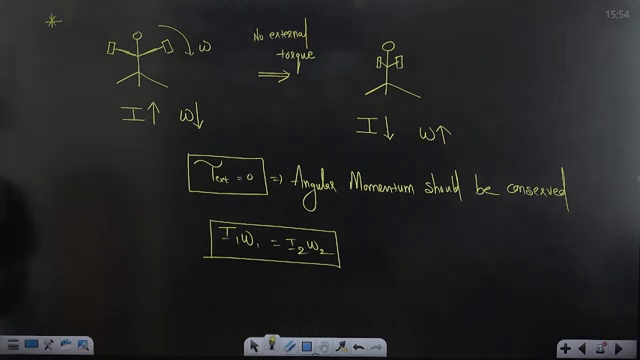 15:54
*
ω
No external
torque
⇒
I↑ ω↓
I↓ ω↑
τext = 0 ⇒ Angular Momentum should be conserved
I₁ω₁ = I₂ω₂